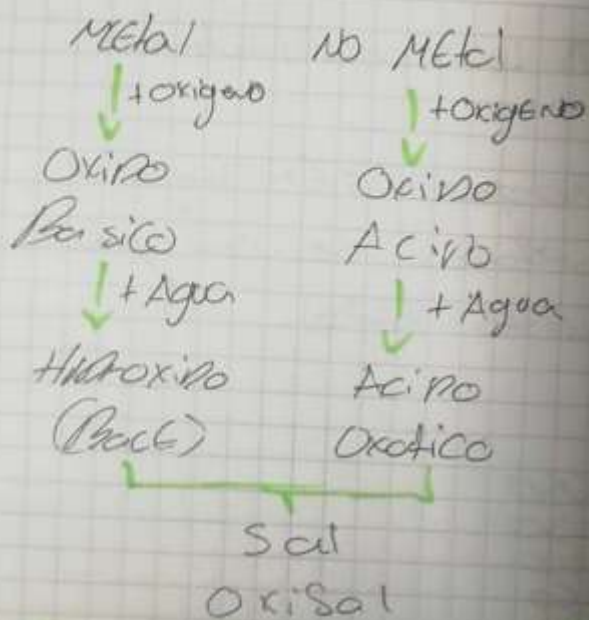 Metal
+ oxigeno
Oxido
Basico
+ Agua
Hidroxido
(Bace)
NO MEtal
+ OxigENO
Oxido
Acido
+ Agua
Acido
Oxatico
Sal
OxiSal